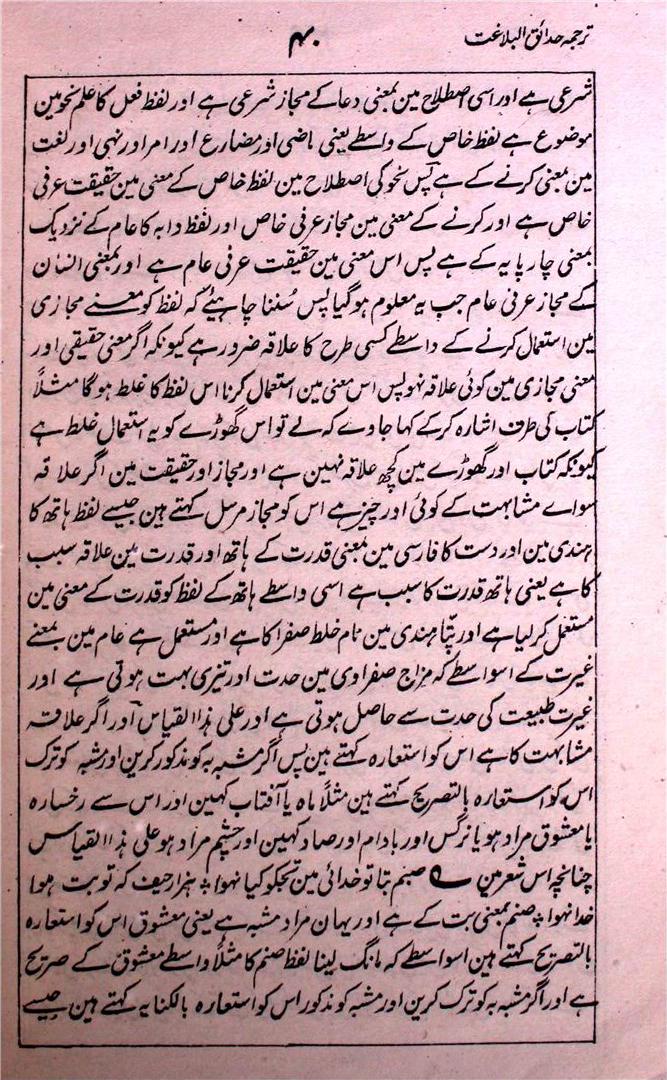 ترجمہ حدائق البلاغت
۴۰
شرعی ہے اور اسی اصطلاح مین بمعنی دعا کے مجاز شرعی ہے اور لفظ فعل کا علم نحو مین
موضوع ہے لفظ خاص کے واسطے یعنی ماضی اور مضارع اور امر اور نہی اور لغت
مین بمعنی کرنے کے ہے پس نحو کی اصطلاح مین لفظ خاص کے معنی مین حقیقت عرفی
خاص ہے اور کرنے کے معنی مین مجاز عرفی خاص اور لفظ دابہ کا عام کے نزدیک
بمعنی چارپایہ کے ہے پس اس معنی مین حقیقت عرفی عام ہے اور بمعنی انسان
کے مجاز عرفی عام جب یہ معلوم ہو گیا پس سُننا چاہیئے کہ لفظ کو معنے مجازی
مین استعمال کرنے کے واسطے کسی طرح کا علاقہ ضرور ہے کیونکہ اگر معنی حقیقی اور
معنی مجازی مین کوئی علاقہ نہو پس اس معنی مین استعمال کرنا اس لفظ کا غلط ہوگا مثلاً
کتاب کی طرف اشارہ کرکے کہا جاوے کہ لے تو اس گھوڑے کو یہ استعمال غلط ہے
کیونکہ کتاب اور گھوڑے مین کچھ علاقہ نہین ہے اور مجاز اور حقیقت مین اگر علاقہ
سواے مشابہت کے کوئی اور چیز ہے اس کو مجاز مرسل کہتے ہین جیسے لفظ ہاتھ کا
ہندی مین اور دست کا فارسی مین بمعنی قدرت کے ہاتھ اور قدرت مین علاقہ سبب
کا ہے یعنی ہاتھ قدرت کا سبب ہے اسی واسطے ہاتھ کے لفظ کو قدرت کے معنی مین
مستعمل کرلیا ہے اور پتّا ہندی مین نام خلط صفرا کا ہے اور مستعمل ہے عام مین بمعنے
غیرت کے اسواسطے کہ مزاج صفراوی مین حدت اور تیزی بہت ہوتی ہے اور
غیرت طبیعت کی حدت سے حاصل ہوتی ہے اور علی ہذا القیاس اور اگر علاقہ
مشابہت کا ہے اس کو استعارہ کہتے ہین پس اگر مشبہ بہ کو مذکور کرین اور مشبہ کو ترک
اس کو استعارہ بالتصریح کہتے ہین مثلاً ماہ یا آفتاب کہین اور اس سے رخسارہ
یا معشوق مراد ہو یا نرگس اور بادام اور صاد کہین اور چشم مراد ہو علی ہذا القیاس
چنانچہ اس شعر مین صنم بنا تو خدائی مین تجکو کیا نہوا ؞ ہزار حیف کہ تو بت ہوا
خدا نہوا ؞ صنم بمعنی بت کے ہے اور یہان مراد مشبہ ہے یعنی معشوق اس کو استعارہ
بالتصریح کہتے ہین اسواسطے کہ مانگ لینا لفظ صنم کا مثلاً واسطے معشوق کے صریح
ہے اور اگر مشبہ بہ کو ترک کرین اور مشبہ کو مذکور اس کو استعارہ بالکنایہ کہتے ہین جیسے